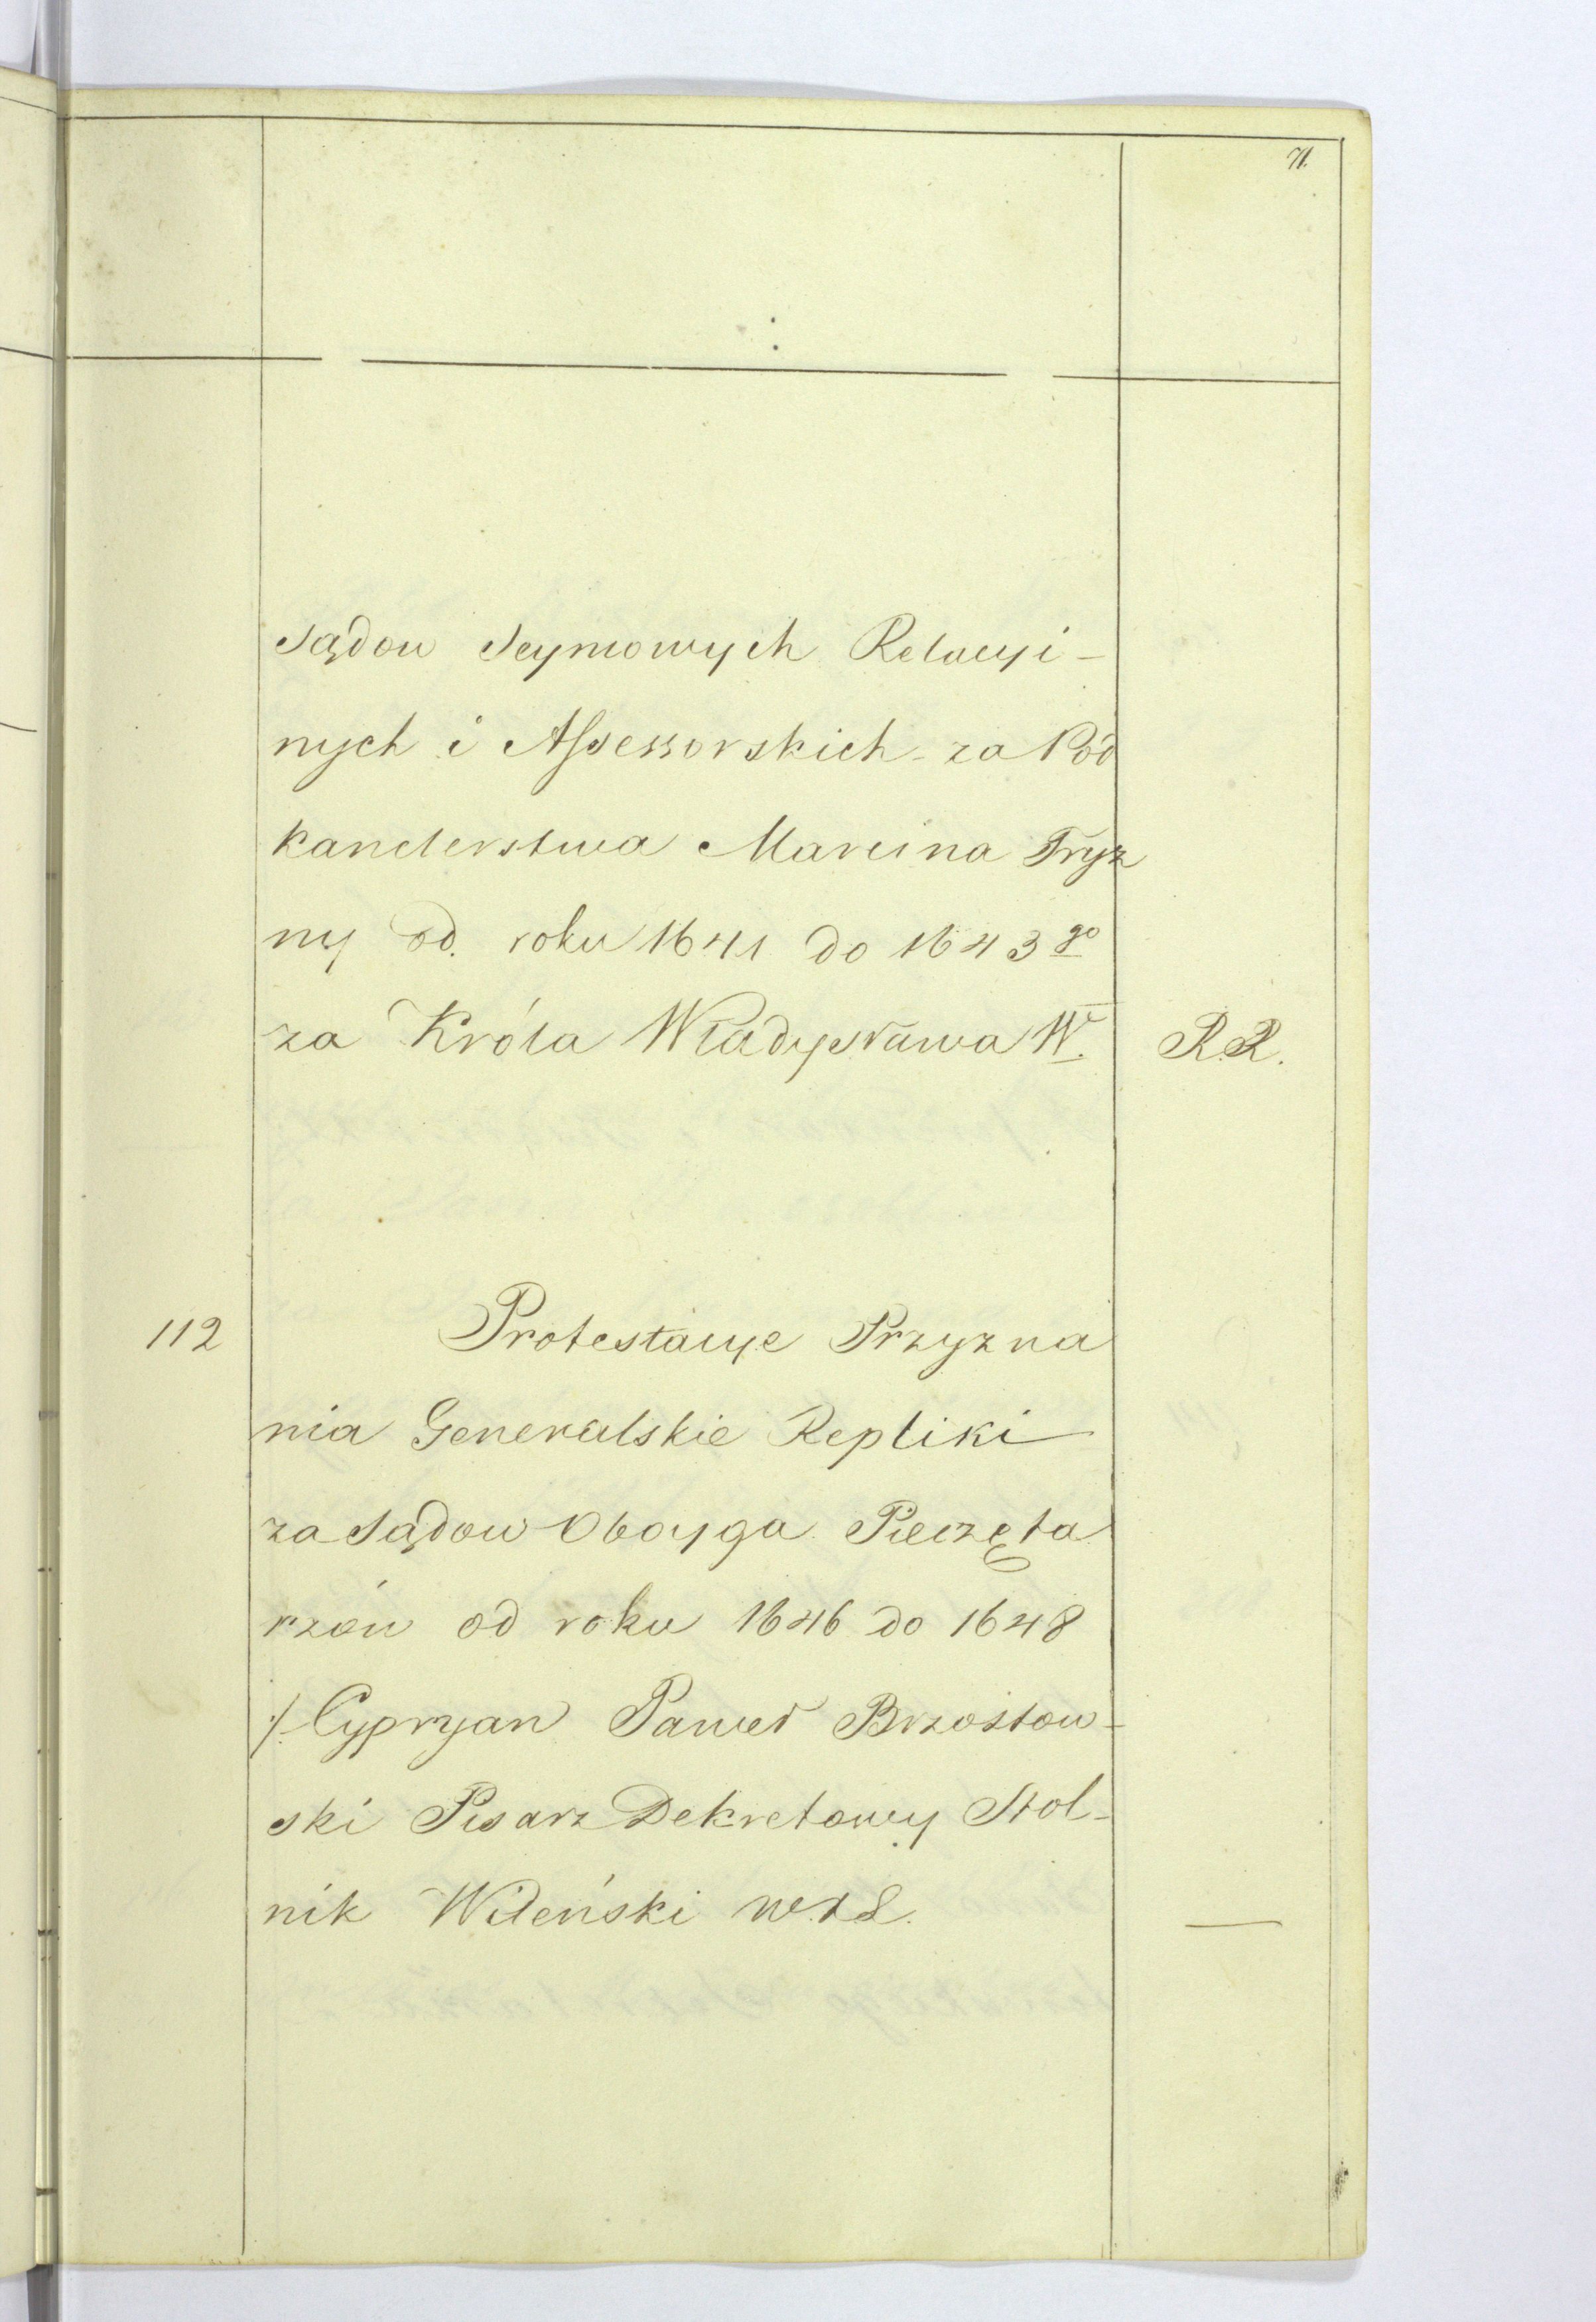 71.
Sądow Seymowych Relacyi-
nych i Assessorskich za Pod
kanclerstwa Marcina Tryz
ny od. roku 1641 do 1643go
za Króla Władysława IV. R.R.
112 Protestacye Przyzna
nia Generalskie Repliki
za Sądow Oboyga Pieczęta
rzów od roku 1646 do 1648
/: Cypryan Paweł Brzostow-
ski Pisarz Dekretowy Stol-
nik Wileński